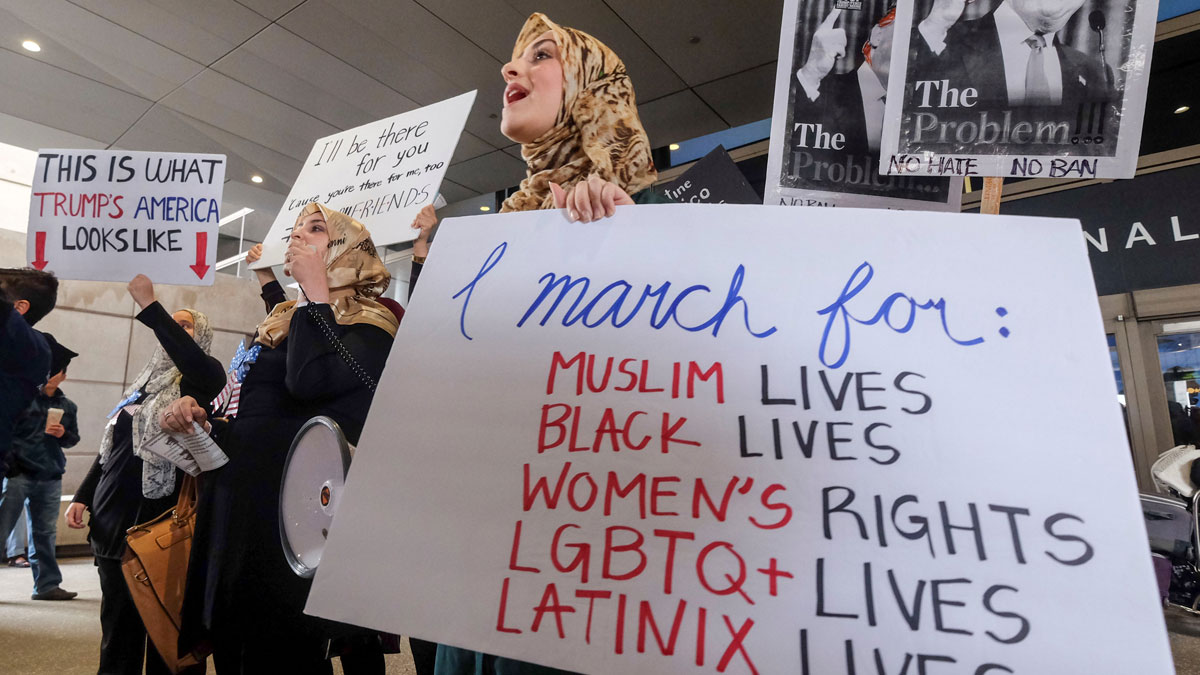 THIS IS WHAT
TRUMP'S AMERICA
LOOKS LIKE
I'll be there
for you
'Cause you're there for me, too
F·R·I·E·N·D·S
The
Problem
NO BAN
The
Problem...!!!
NO HATE NO BAN
NAL
I march for:
MUSLIM LIVES
BLACK LIVES
WOMEN'S RIGHTS
LGBTQ+ LIVES
LATINIX LIVES